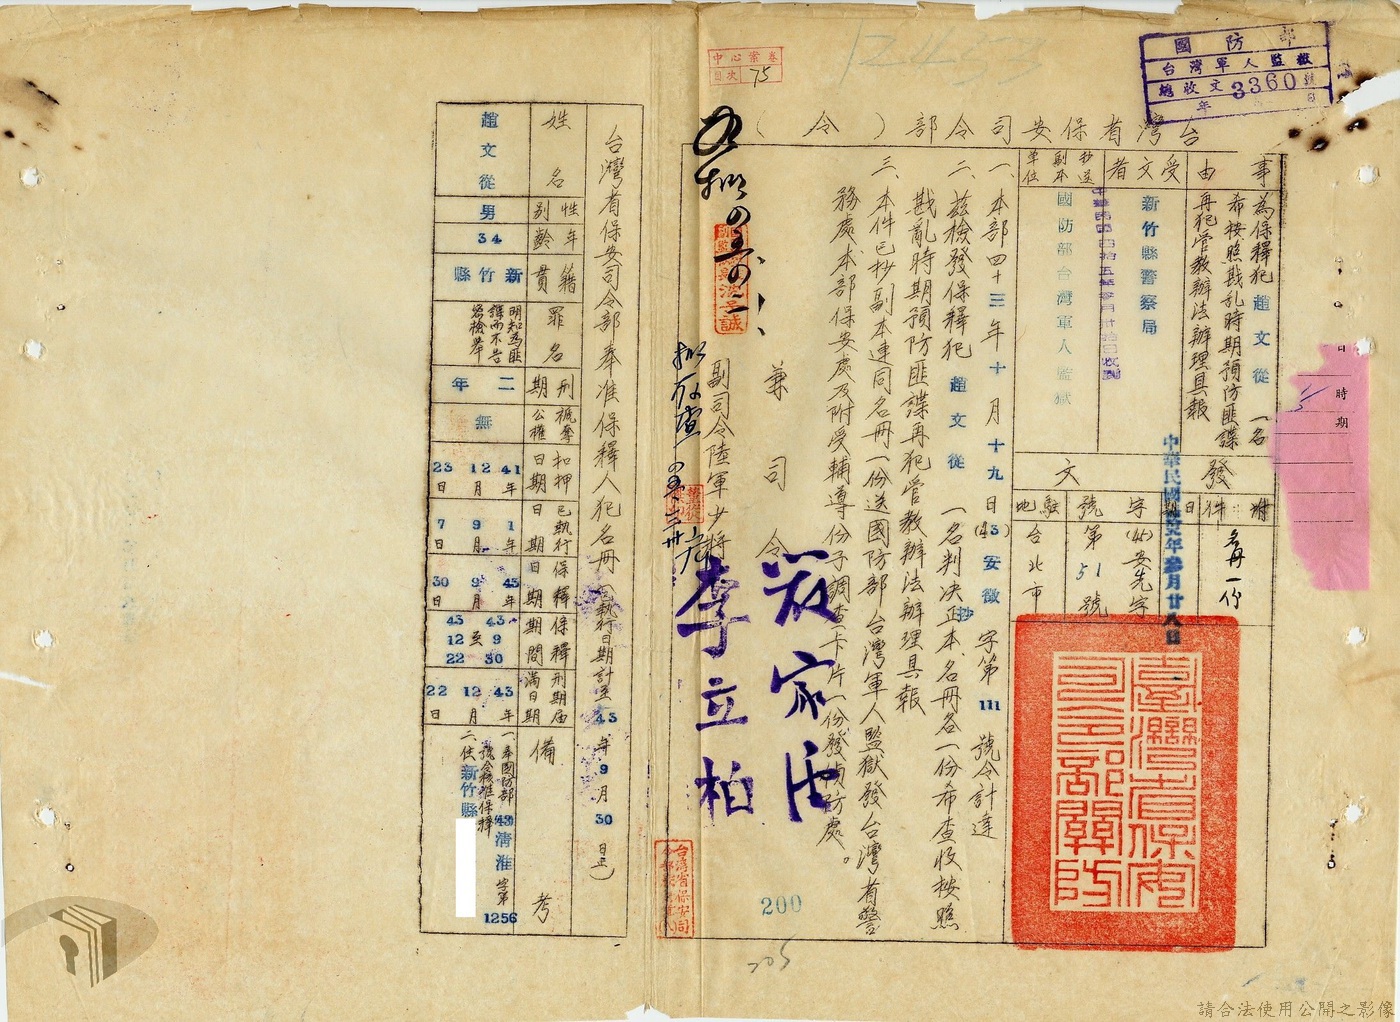 國防部
台灣軍人監獄
總收文3360號
年
中心案卷
目次 75
台灣省保安司令部（令）
事由
為保釋犯趙文從一名
希按照戡乱時期預防匪諜
再犯管教辦法辦理具報
受文者
新竹縣警察局
抄送副本單位
國防部台灣軍人監獄
發文
附件
名冊一份
日期
中華民國肆拾伍年參月廿八日
字號
(45)安先字
第51號
駐地
台北市
一、本部四十三年十月十九日(43)安徵字第111號令計達
二、茲檢發保釋犯趙文從一名判决正抄本名冊各一份希查收按照
戡亂時期預防匪諜再犯管教辦法辦理具報
三、本件已抄副本連同名冊一份送國防部台灣軍人監獄發台灣省警
務處本部保安處及附受輔導份子調查卡片一份發偵防處。
兼司令
副司令陸軍少將李立柏
臺灣省保安司令部關防
200
205
台灣省保安司令部奉准保釋人犯名冊(已執行日期計至43年9月30日止)
姓名 趙文從
性別 男
年齡 34
籍貫 新竹縣
罪名 明知為匪諜而不告密檢舉
刑期 二年
褫奪公權 無
扣押日期 41年12月23日
已執行日期 1年9月7日
保釋日期 43年9月30日
保釋期間 43 9 30至43 12 22
刑期屆滿日期 43年12月22日
備考
一、奉國防部(43)清淮字第1256號令核准保釋
二、住新竹縣
時期
請合法使用公開之影像